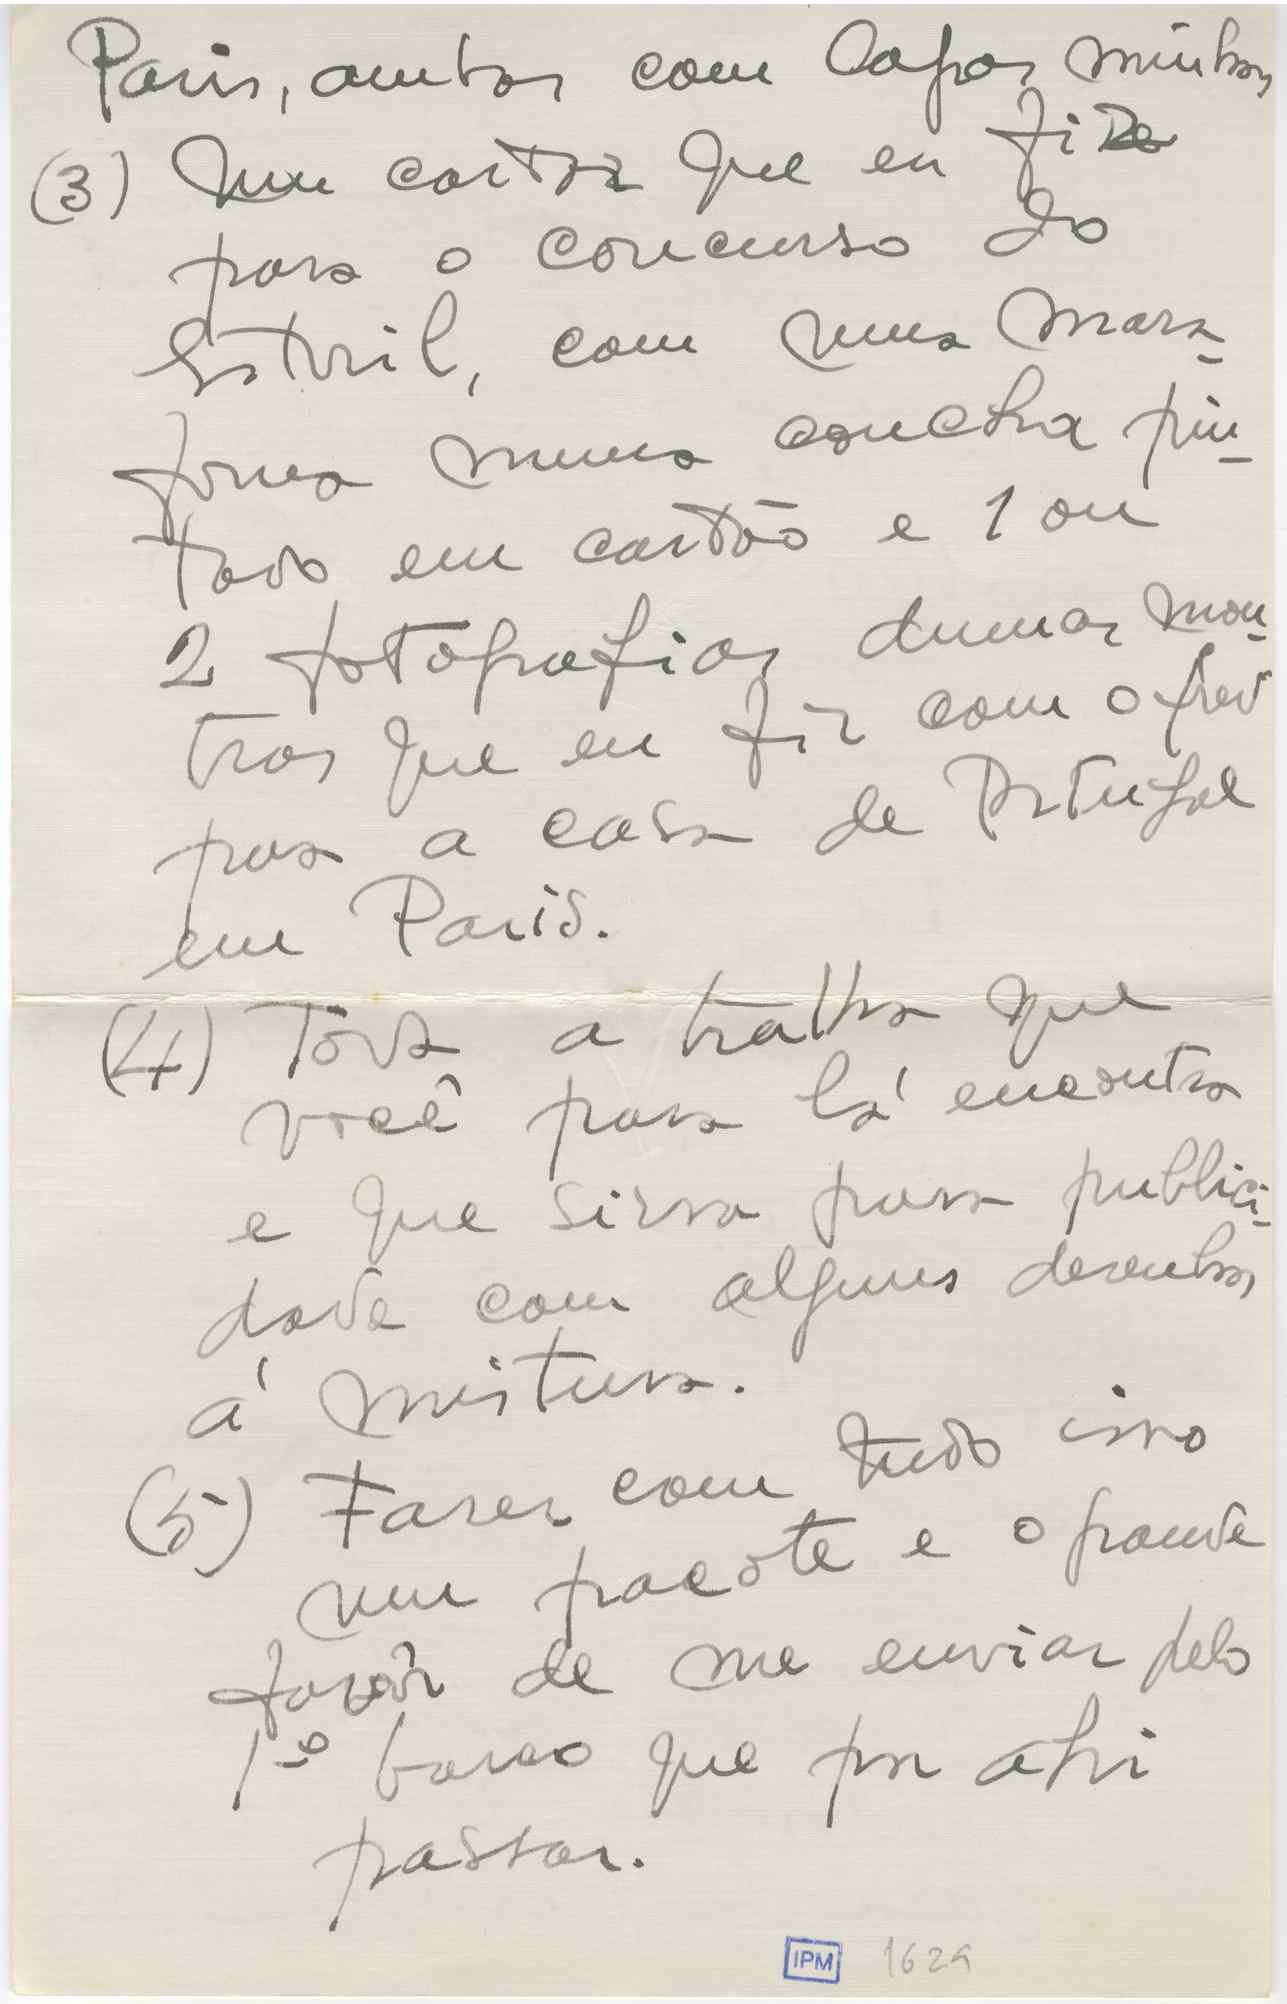 Paris, ambas com capas minhas
(3) Um cartaz que eu fiz
para o concurso do
Estoril, com uma mara-
fona numa concha pin-
tado em cartão e 1 ou
2 fotografias dumas mon-
tras que eu fiz com o Fred
para a casa de Portugal
em Paris.
(4) Toda a tralha que
você para lá encontra
e que sirva para publici-
dade com alguns desenhos
á mistura.
(5) Fazer com tudo isso
um pacote e o grande
favôr de me enviar pelo
1º barco que por ahi
passar.
IPM 1629